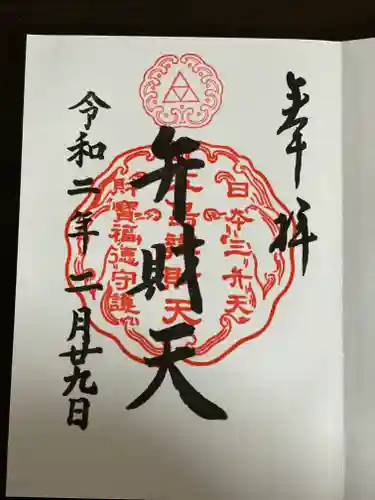 奉拝
日本三弁天
弁財天
財寶福徳守護
令和二年二月廿九日